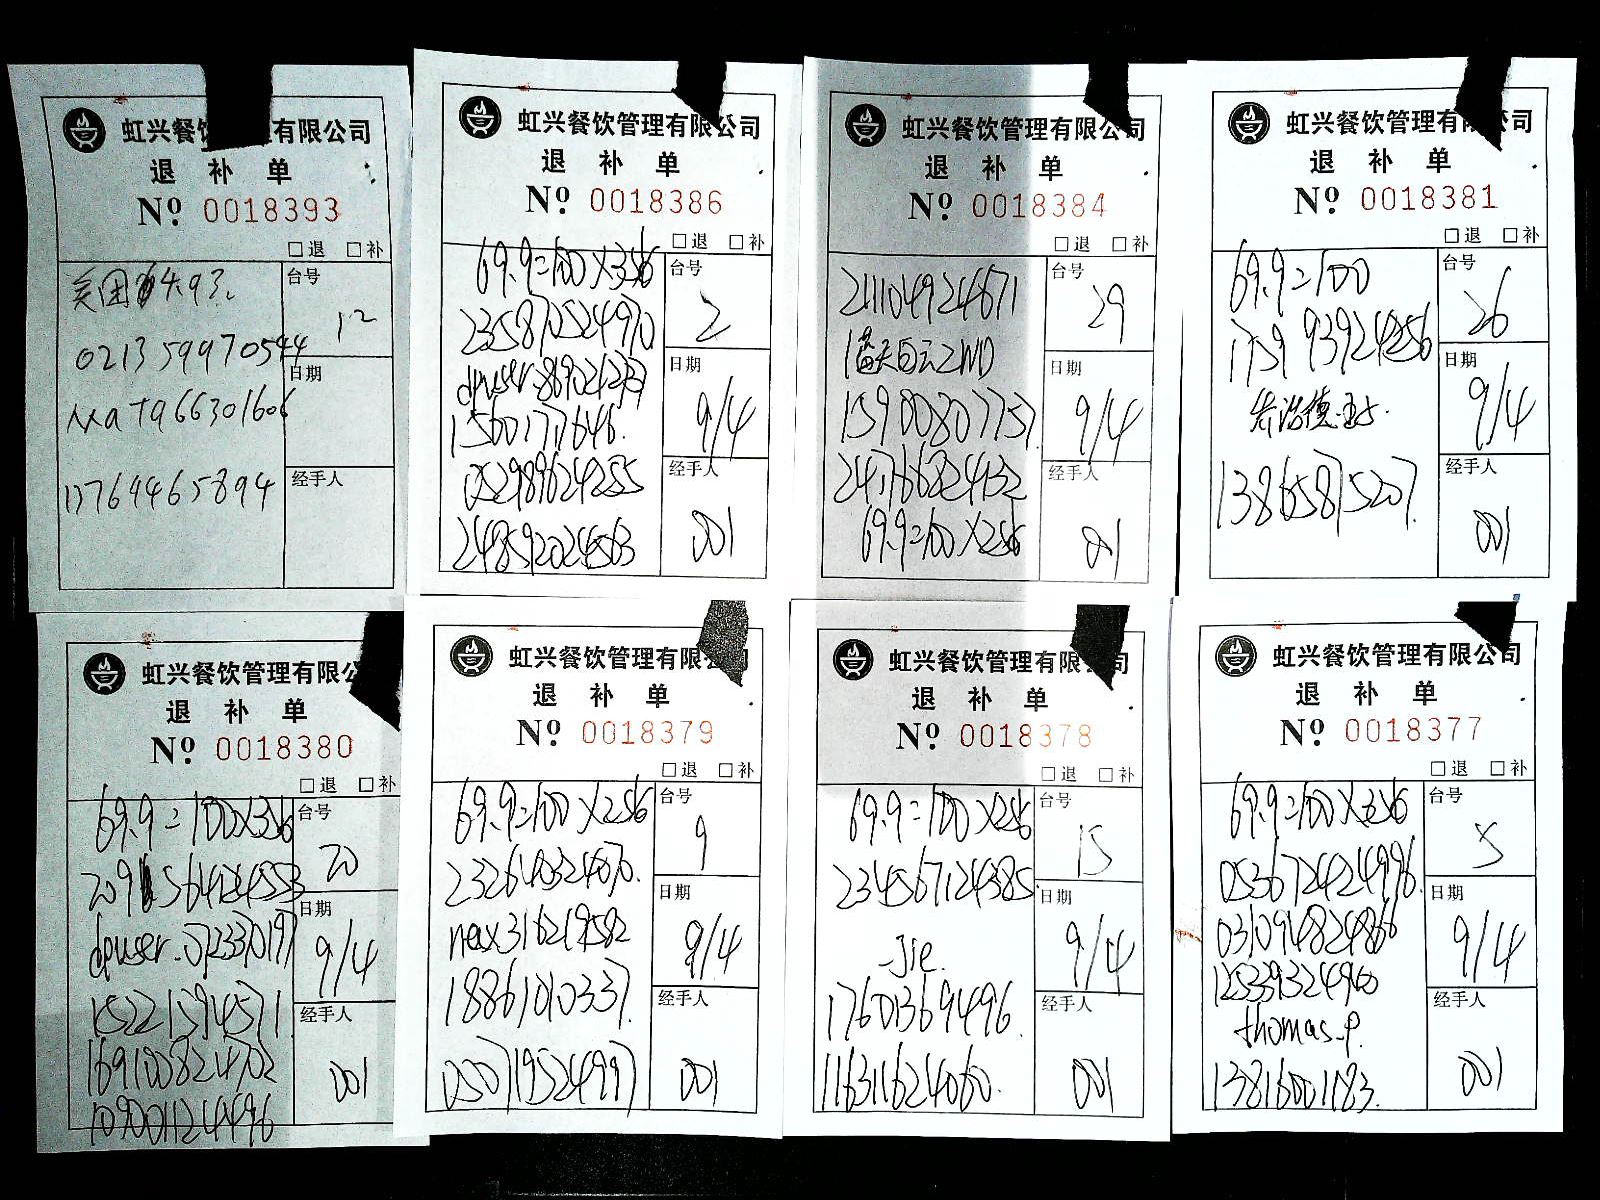 虹兴餐饮管理有限公司
退 补 单
Nº 0018393
□退 □补
美团 493.
台号
12
021359970544
日期
17769465894
经手人
虹兴餐饮管理有限公司
退 补 单
Nº 0018386
□退 □补
69.9=100×3
台号
2
235870524970
日期
9/4
15601777646.
经手人
052989624255
001
248592024503
虹兴餐饮管理有限公司
退 补 单
Nº 0018384
□退 □补
台号
29
211104924871
蓝天白云ZWD
日期
9/4
15900807757.
经手人
247766824132
001
69.9=100×2
虹兴餐饮管理有限公司
退 补 单
Nº 0018381
□退 □补
69.9=100
台号
26
175993924256
日期
9/4
经手人
13865875207.
001
虹兴餐饮管理有限公
退 补 单
Nº 0018380
□退 □补
69.9=100×3
台号
20
日期
9/4
15221594571
经手人
169100824702
001
109001124496
虹兴餐饮管理有限公司
退 补 单
Nº 0018379
□退 □补
69.9=100×2
台号
9
232640324870.
日期
9/4
18861010337.
经手人
050719524997
001
虹兴餐饮管理有限公司
退 补 单
Nº 0018378
□退 □补
69.9=100×2
台号
15
234567124385.
日期
9/4
Jie.
17601369496.
经手人
116311624060.
001
虹兴餐饮管理有限公司
退 补 单
Nº 0018377
□退 □补
69.9=100×3
台号
5
053672424996.
日期
9/4
031094824866
125339324960
经手人
thomas-p.
001
13816001183.